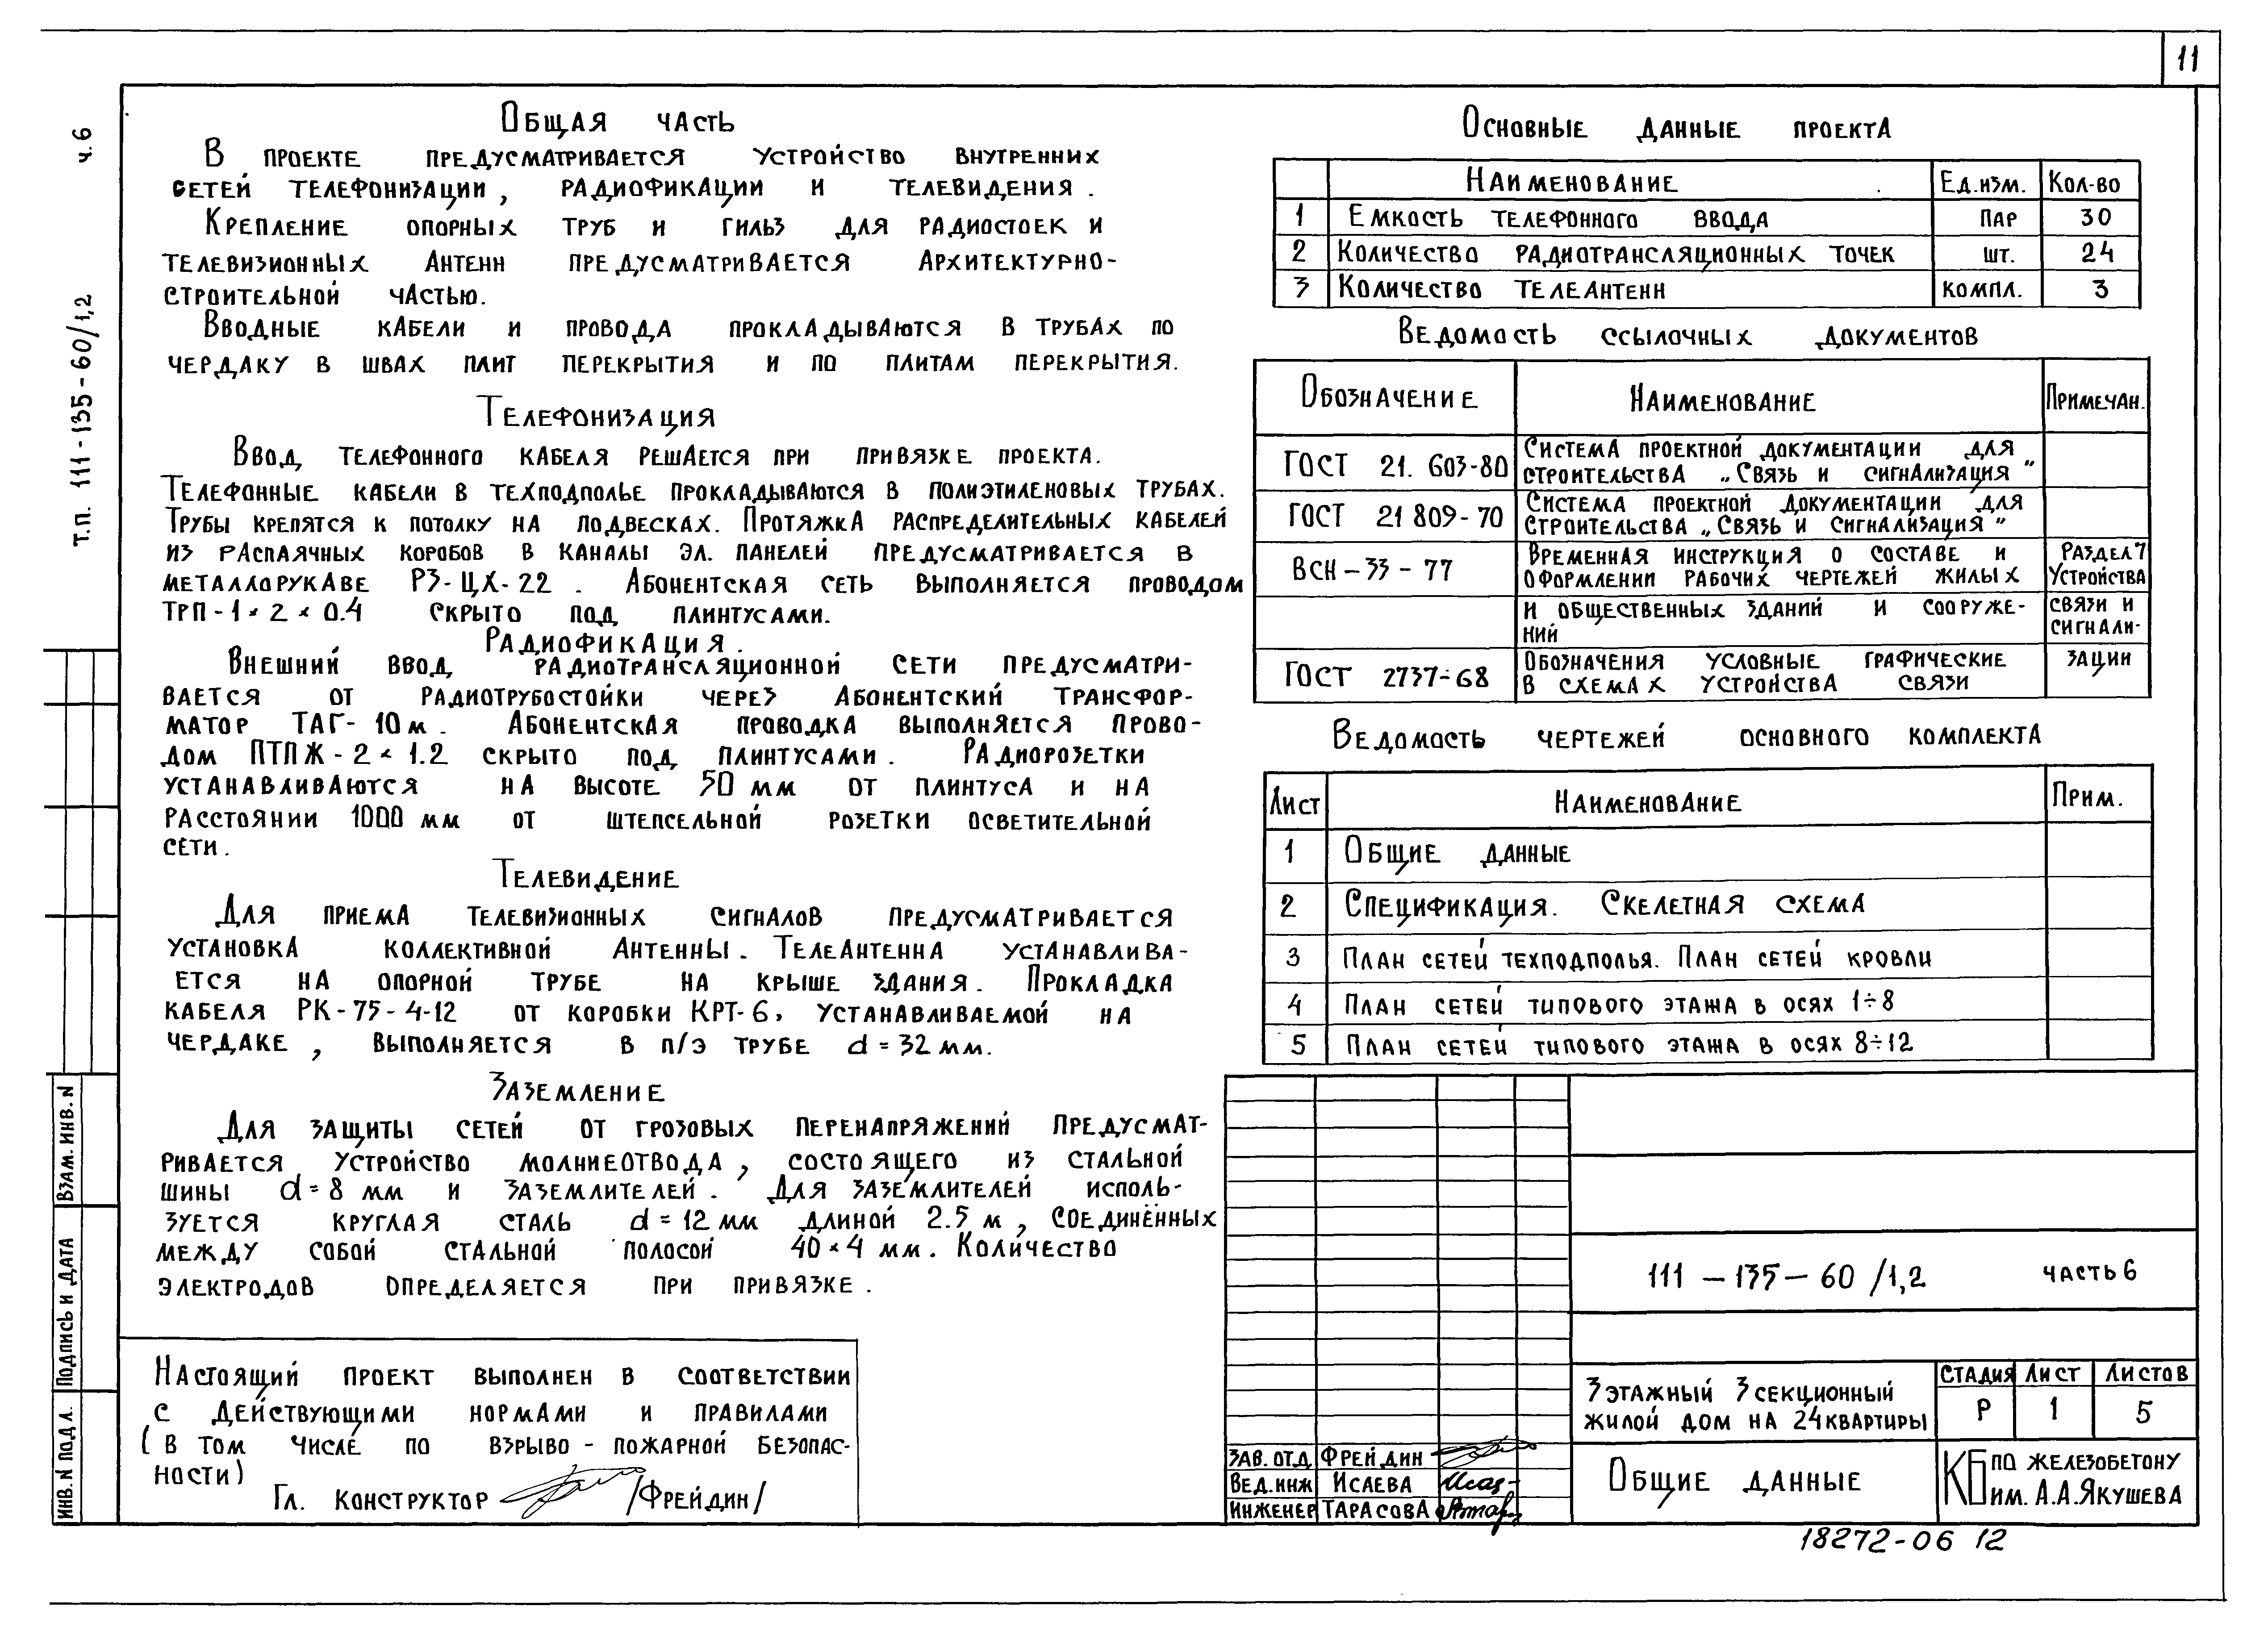 11
ч. 6
Т.П. 111-135-60/1,2
Общая часть
В проекте предусматривается устройство внутренних
сетей телефонизации, радиофикации и телевидения.
Крепление опорных труб и гильз для радиостоек и
телевизионных антенн предусматривается архитектурно-
строительной частью.
Вводные кабели и провода прокладываются в трубах по
чердаку в швах плит перекрытия и по плитам перекрытия.
Телефонизация
Ввод телефонного кабеля решается при привязке проекта.
Телефонные кабели в техподполье прокладываются в полиэтиленовых трубах.
Трубы крепятся к потолку на подвесках. Протяжка распределительных кабелей
из распаячных коробов в каналы эл. панелей предусматривается в
металлорукаве РЗ-ЦХ-22. Абонентская сеть выполняется проводом
ТРП-1×2×0.4 скрыто под плинтусами.
Радиофикация.
Внешний ввод радиотрансляционной сети предусматри-
вается от радиотрубостойки через абонентский трансфор-
матор ТАГ-10м. Абонентская проводка выполняется прово-
дом ПТПЖ-2×1.2 скрыто под плинтусами. Радиорозетки
устанавливаются на высоте 50 мм от плинтуса и на
расстоянии 1000 мм от штепсельной розетки осветительной
сети.
Телевидение
Для приема телевизионных сигналов предусматривается
установка коллективной антенны. Телеантенна устанавлива-
ется на опорной трубе на крыше здания. Прокладка
кабеля РК-75-4-12 от коробки КРТ-6, устанавливаемой на
чердаке, выполняется в п/э трубе d=32 мм.
Заземление
Для защиты сетей от грозовых перенапряжений предусмат-
ривается устройство молниеотвода, состоящего из стальной
шины d=8 мм и заземлителей. Для заземлителей исполь-
зуется круглая сталь d=12 мм длиной 2.5 м, соединенных
между собой стальной полосой 40×4 мм. Количество
электродов определяется при привязке.
Настоящий проект выполнен в соответствии
с действующими нормами и правилами
(в том числе по взрыво-пожарной безопас-
ности)
Гл. конструктор /Фрейдин/
Основные данные проекта
Наименование Ед.изм. Кол-во
1 Емкость телефонного ввода пар 30
2 Количество радиотрансляционных точек шт. 24
3 Количество телеантенн компл. 3
Ведомость ссылочных документов
Обозначение Наименование Примечан.
ГОСТ 21. 603-80 Система проектной документации для
строительства „Связь и сигнализация"
ГОСТ 21 809-70 Система проектной документации для
строительства „Связь и сигнализация"
ВСН-33-77 Временная инструкция о составе и раздел 7
оформлении рабочих чертежей жилых устройства
и общественных зданий и сооруже- связи и
ний сигнали-
ГОСТ 2737-68 Обозначения условные графические зации
в схемах устройства связи
Ведомость чертежей основного комплекта
Лист Наименование Прим.
1 Общие данные
2 Спецификация. Скелетная схема
3 План сетей техподполья. План сетей кровли
4 План сетей типового этажа в осях 1÷8
5 План сетей типового этажа в осях 8÷12
111-135-60/1,2 часть 6
3этажный 3секционный
жилой дом на 24квартиры
Стадия Лист Листов
Р 1 5
Зав. отд Фрейдин
Вед.инж Исаева
Инженер Тарасова
Общие данные
КБ по железобетону
им. А.А.Якушева
Взам. инв. N
Подпись и дата
Инв. N подл.
18272-06 12